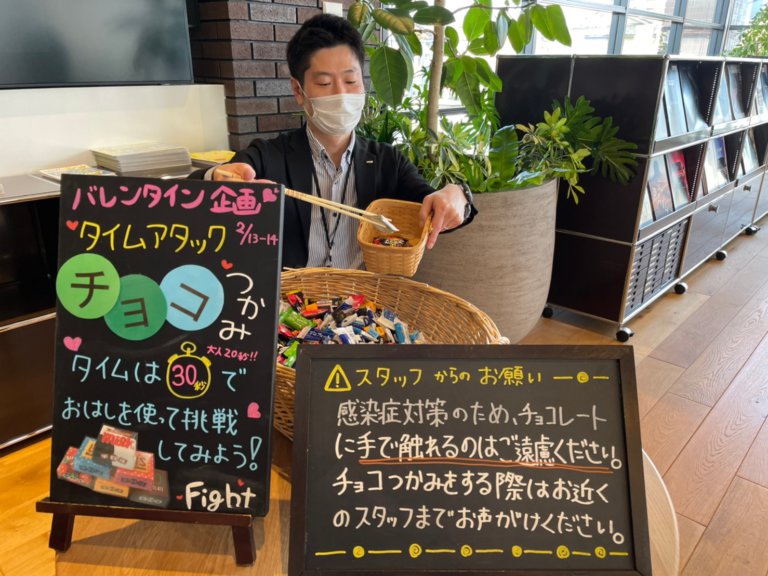 バレンタイン 企画
タイムアタック 2/13-14
チョコ
つかみ
大人20秒!!
タイムは30秒で
おはしを使って挑戦
してみよう!
Fight
スタッフ からの お願い
感染症対策のため、チョコレート
に手で触れるのはご遠慮ください。
チョコつかみをする際はお近く
のスタッフまでお声がけください。